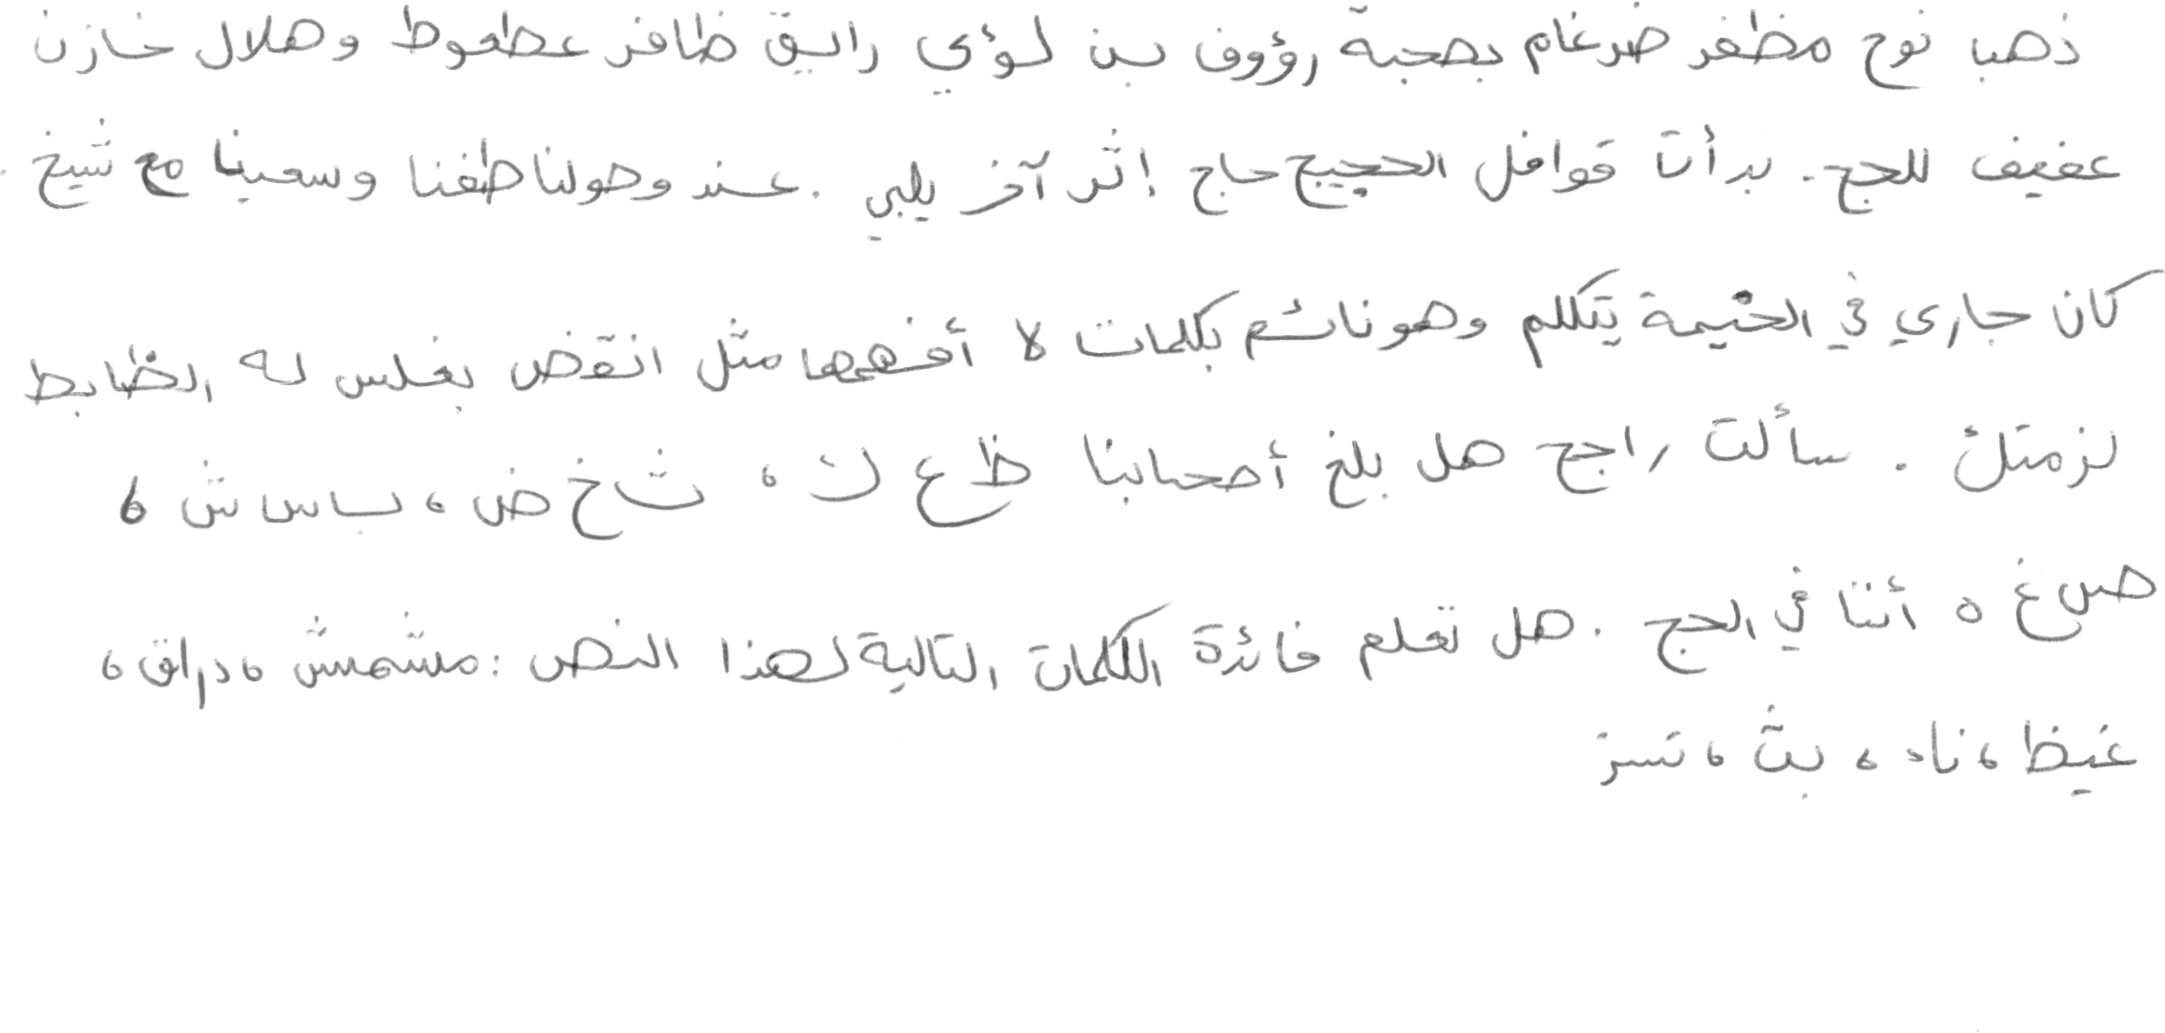 ذهبا نوح مظفر ضرغام بصحبة رؤوف بن لؤي رايق ظافر عطعوط وهلال خازن
عفيف للحج. بدأت قوافل الحجيج حاج إثر آخر يلبي. عند وصولنا طفنا وسعينا مع شيخ.
كان جاري في الخيمة يتكلم وهو نائم بكلمات لا أفهمها مثل انقض بغلس له الظابط
لزمتك. سألت راجح هل بلغ أصحابنا ظ ع ك، ث خ ض، ب س ش،
ص غ ه أننا في الحج. هل تعلم فائدة الكلمات التالية لهذا النص: مشمش، دراق،
غيظ، ناه، بث، تسز